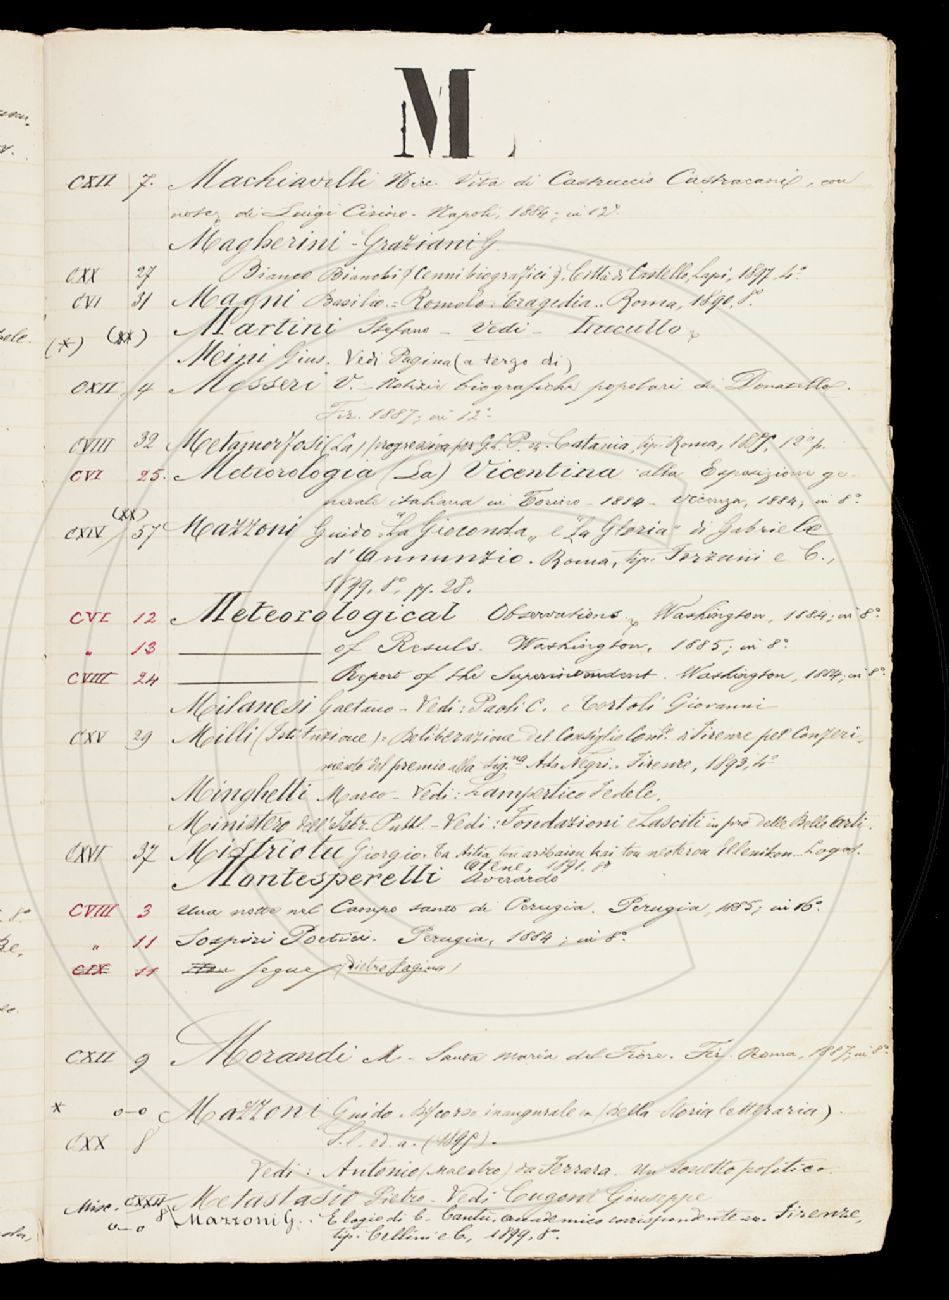 M
CXII 7. Machiavelli Nicc. Vita di Castruccio Castracani, con
note di Luigi Cirino. Napoli, 1884; in 12°
Magherini-Graziani G.
CXX 27 Bianco Bianchi (Cenni biografici). Città di Castello, Lapi, 1897, 4°
CVI 31 Magni Basilio = Romolo. Tragedia. Roma, 1890, 8°
Martini Stefano - Vedi - Trucullo
(*) (xx) Meini Gius. Vedi Pagina (a tergo di)
CXII 4 Messeri V. - Notizie biografiche popolari di Donatello.
Fir. 1887; in 12°.
CVIII 32 Metamorfosi (La) progressiva per G. L. P. Catania, tip. Roma, 12° p.
CVI 25. Meteorologia (La) Vicentina alla Esposizione ge-
nerale italiana in Torino - 1884 - Vicenza, 1884; in 8°
(xx)
CXIV 57 Mazzoni Guido. "La Gioconda" e "La Gloria" di Gabriele
d'Annunzio. Roma, tip. Forzani e C.,
1899, 8°, pp. 28.
CVI 12 Meteorological Observations, Washington, 1884; in 8°
" 13 of Resuls. Washington, 1885; in 8°
CVIII 24 Report of the Superintendent. Washington, 1884; in 8°.
Milanesi Gaetano - Vedi: Paoli C. e Tortoli Giovanni
CXV 29 Milli (Istituzione): Deliberazione del Consiglio Com. di Firenze pel Conferi-
mento del premio alla Sig.na Ada Negri. Firenze, 1893, 4°
Minghetti Marco - Vedi: Lampertico Fedele.
Ministero dell'Istr. Pubbl. - Vedi: Fondazioni e Lasciti in pro delle Belle Arti.
CXVI 37 Mistriotu Giorgio. Ta Aitia tou archaiou kai tou neoterou Ellenikon Logos.
Atene, 1891, 8°
Montesperelli Averardo
CVIII 3 Una notte nel Campo santo di Perugia. Perugia, 1885; in 16°.
" 11 Sospiri Poetici. Perugia, 1884; in 8°.
CIX 11 Segue (Dietro pagina)
CXII 9 Morandi A. - Santa Maria del Fiore. Fir. Roma, 1887; in 8°
* o-o Mazzoni Guido. Discorso inaugurale in (Della Storia letteraria).
CXX 8 S. l. ed a. (1895).
Vedi: Antonio (Maestro) da Ferrara. Un sonetto politico.
Metastasio Pietro - Vedi Cugnoni Giuseppe
Misc. CXXII 8 Mazzoni G. Elogio di C. Cantù, accademico corrispondente Firenze,
o-o tip. Cellini e C., 1899, 8°.